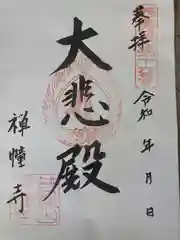 奉拝
令和 年 月 日
大悲殿
禅幢寺